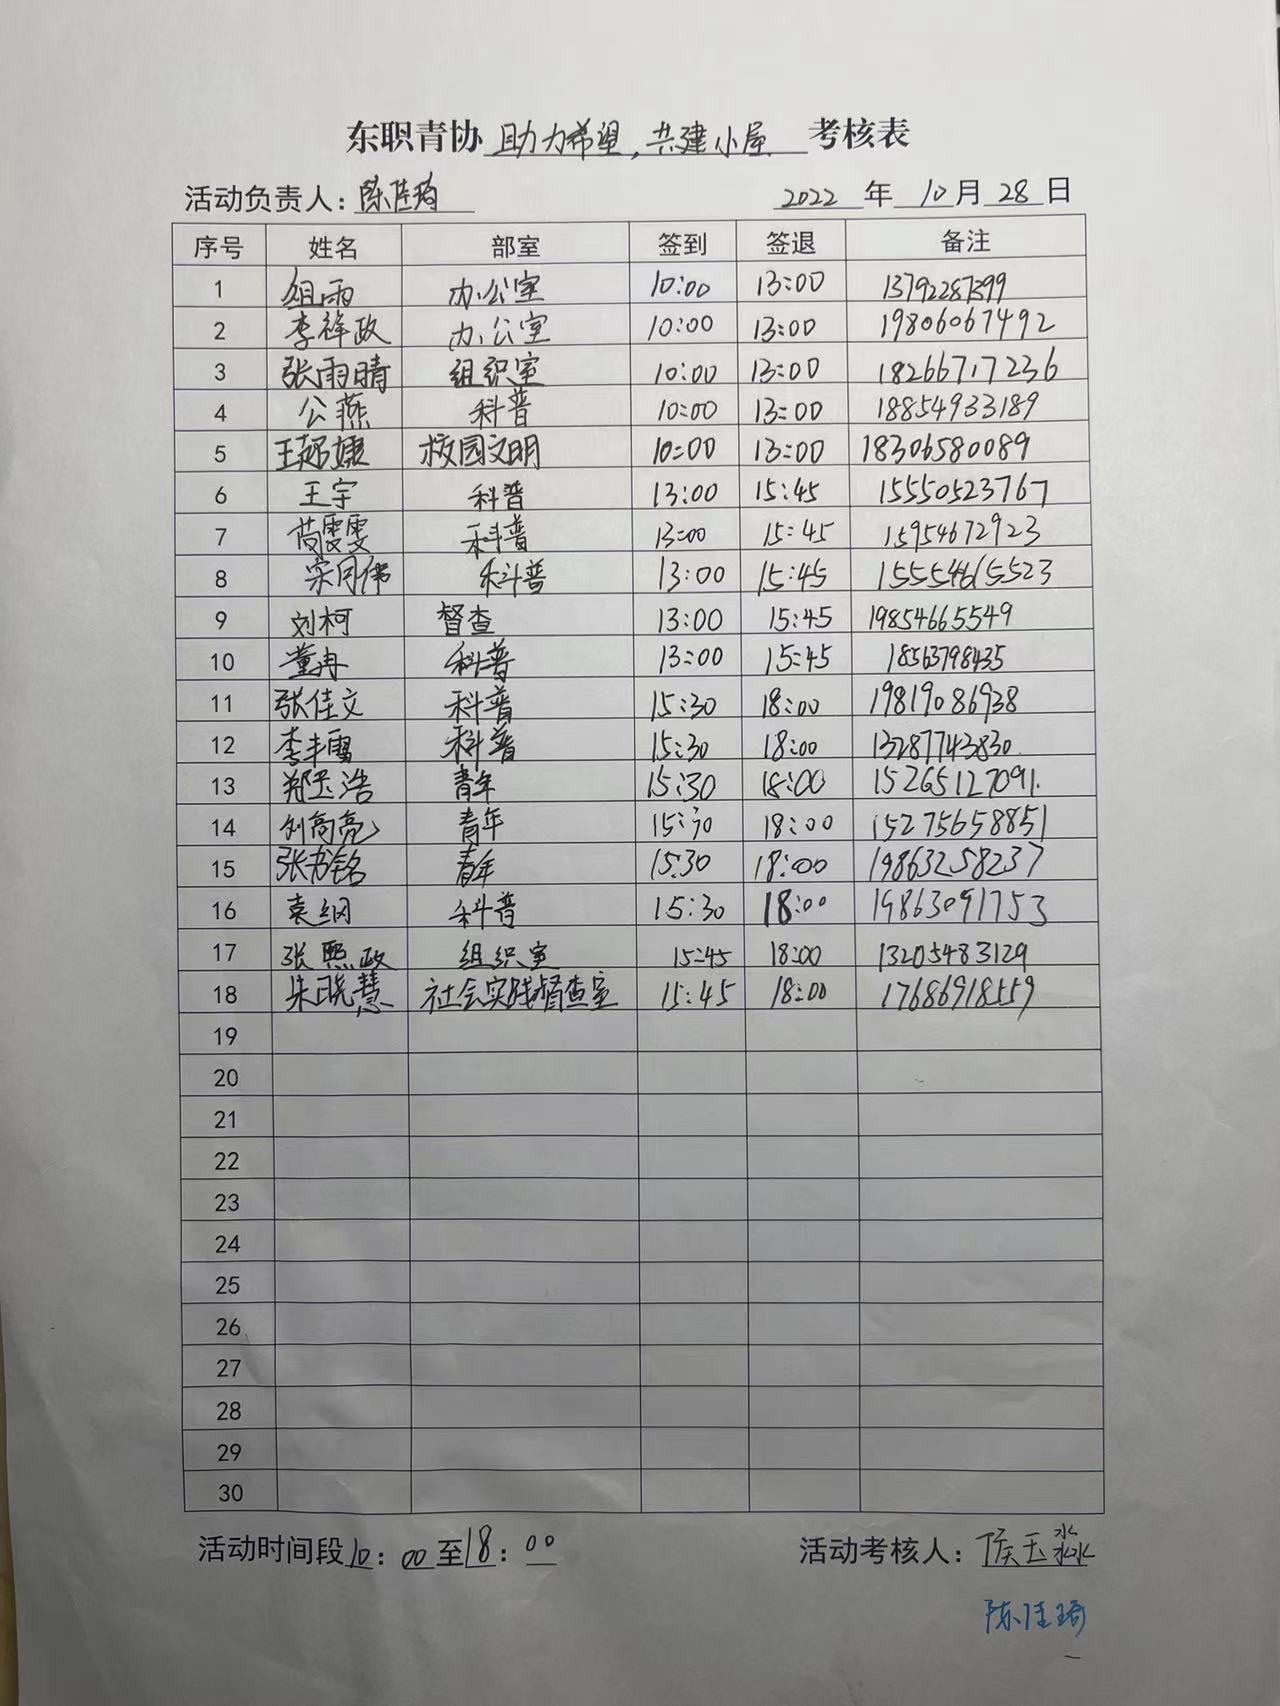 东职青协 助力希望，共建小屋 考核表
活动负责人：陈佳琦 2022 年 10 月 28 日
序号 姓名 部室 签到 签退 备注
1 雨 办公室 10:00 13:00 13792287399
2 李祥政 办公室 10:00 13:00 19806067492
3 张雨晴 组织室 10:00 13:00 18266717236
4 公燕 科普 10:00 13:00 18854933189
5 王 校园文明 10:00 13:00 18306580089
6 王宇 科普 13:00 15:45 15550523767
7 雯雯 科普 13:00 15:45 15954672923
8 宋同伟 科普 13:00 15:45 15554615523
9 刘柯 督查 13:00 15:45 19854665549
10 董冉 科普 13:00 15:45 18563798435
11 张佳文 科普 15:30 18:00 19819086938
12 李丰雪 科普 15:30 18:00 13287743830
13 郑玉浩 青年 15:30 18:00 15265127091.
14 刘尚亮 青年 15:30 18:00 15275658851
15 张书铭 青年 15:30 18:00 19863258237
16 袁纲 科普 15:30 18:00 19863091753
17 张熙政 组织室 15:45 18:00 13205483129
18 朱晓慧 社会实践督查室 15:45 18:00 17686918559
19
20
21
22
23
24
25
26
27
28
29
30
活动时间段 10：00 至 18：00 活动考核人：侯玉淼
陈佳琦